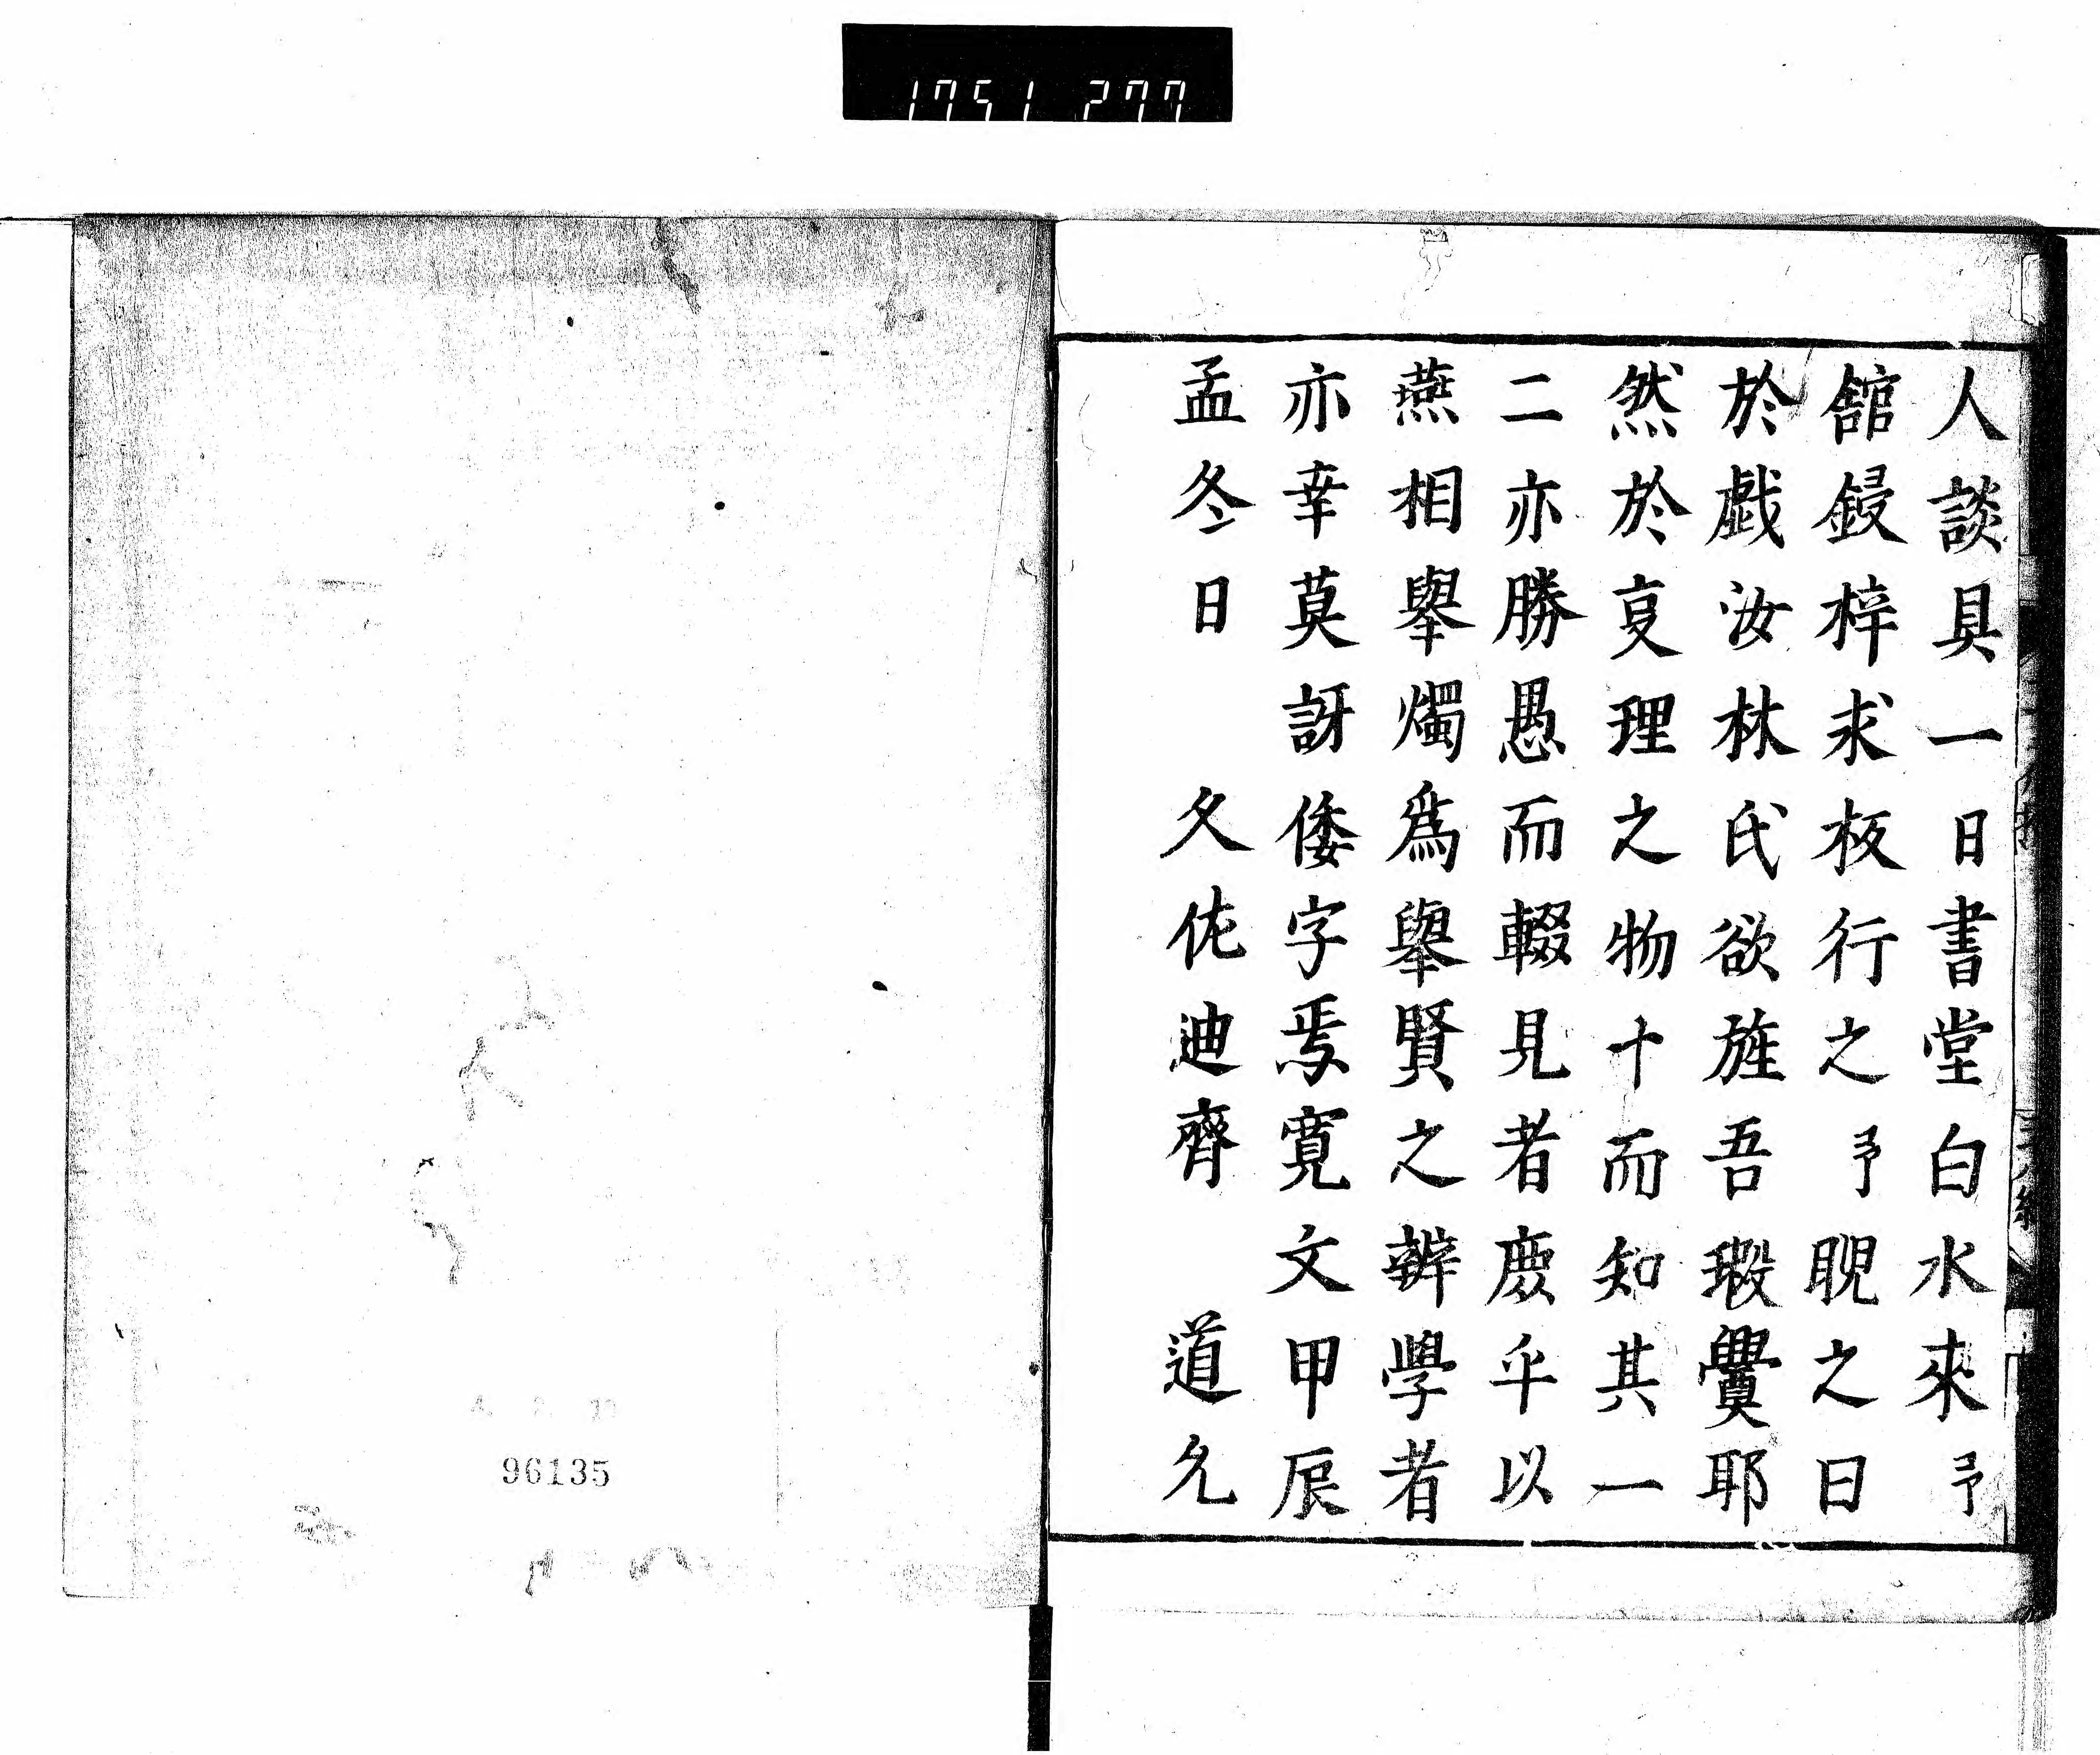 1751 277
人談具一日書堂白水來予
舘鋟梓求板行之予睨之曰
於戲汝林氏欲旌吾瑕釁耶
然於夏理之物十而知其一
二亦勝愚而輟見者慶乎以
燕相舉燭爲舉賢之辨學者
亦幸莫訝倭字焉寬文甲辰
孟冬日 久佐迪齊 道允
96135